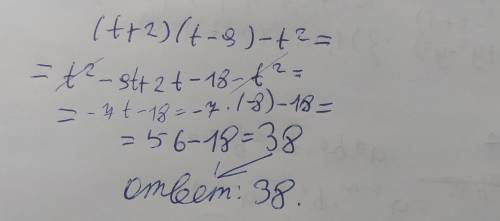 (t+2)(t-9)-t²=
=t²-9t+2t-18-t²=
=-7t-18=-7·(-8)-18=
=56-18=38
ответ: 38.